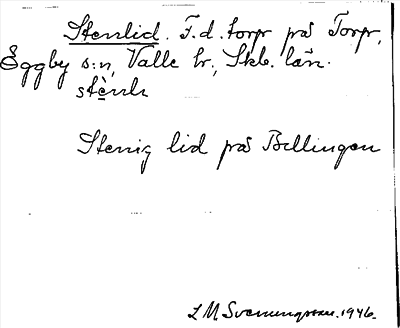 Stenlid. F.d. torp på Torp,
Eggby s:n, Valle hr., Skb. län.
Stenig lid på Billingen
L M Svenungsson. 1946.